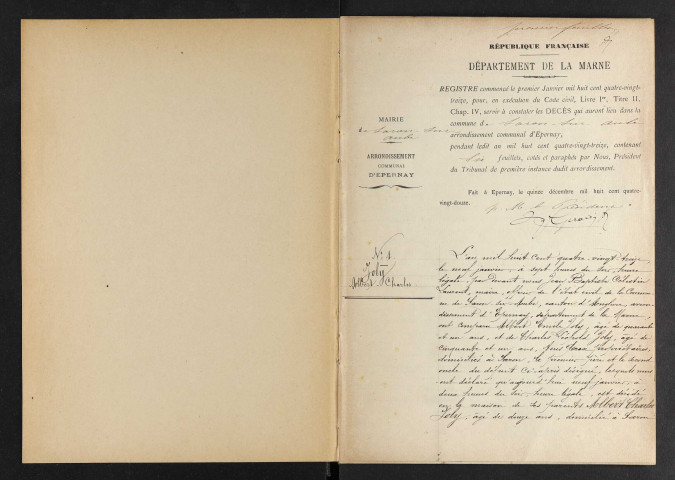 premier feuillet
RÉPUBLIQUE FRANÇAISE
DÉPARTEMENT DE LA MARNE
REGISTRE commencé le premier Janvier mil huit cent quatre-vingt-
treize, pour, en exécution du Code civil, Livre Ier, Titre II,
Chap. IV, servir à constater les DÉCÈS qui auront lieu dans la
commune de Saron sur Aube
arrondissement communal d'Epernay,
pendant ledit an mil huit cent quatre-vingt-treize, contenant
six feuillets, cotés et paraphés par Nous, Président
du Tribunal de première instance dudit arrondissement.
Fait à Epernay, le quinze décembre mil huit cent quatre-
vingt-douze.
MAIRIE
de Saron sur
Aube
ARRONDISSEMENT
COMMUNAL
D'EPERNAY
N° 1
Joly
Albert Charles
L'an mil huit cent quatre-vingt treize
le neuf janvier à sept heures du soir, heure
légale, par devant nous Jean Baptiste Célestin
Laurent, maire, officier de l'état civil de la Commu
ne de Saron sur Aube, canton d'Anglure, arron
dissement d'Epernay, département de la Marne,
ont comparu Albert Emile Joly, âgé de quarante
et un ans, et Charles Joly, âgé de
cinquante et un ans, tous deux propriétaires,
domiciliés à Saron, le premier père et le second
oncle du défunt ci-après désigné, lesquels nous
ont déclaré qu'aujourd'hui neuf janvier, à
deux heures du soir, heure légale, est décédé
en la maison de ses parents Albert Charles
Joly, âgé de douze ans, domicilié à Saron